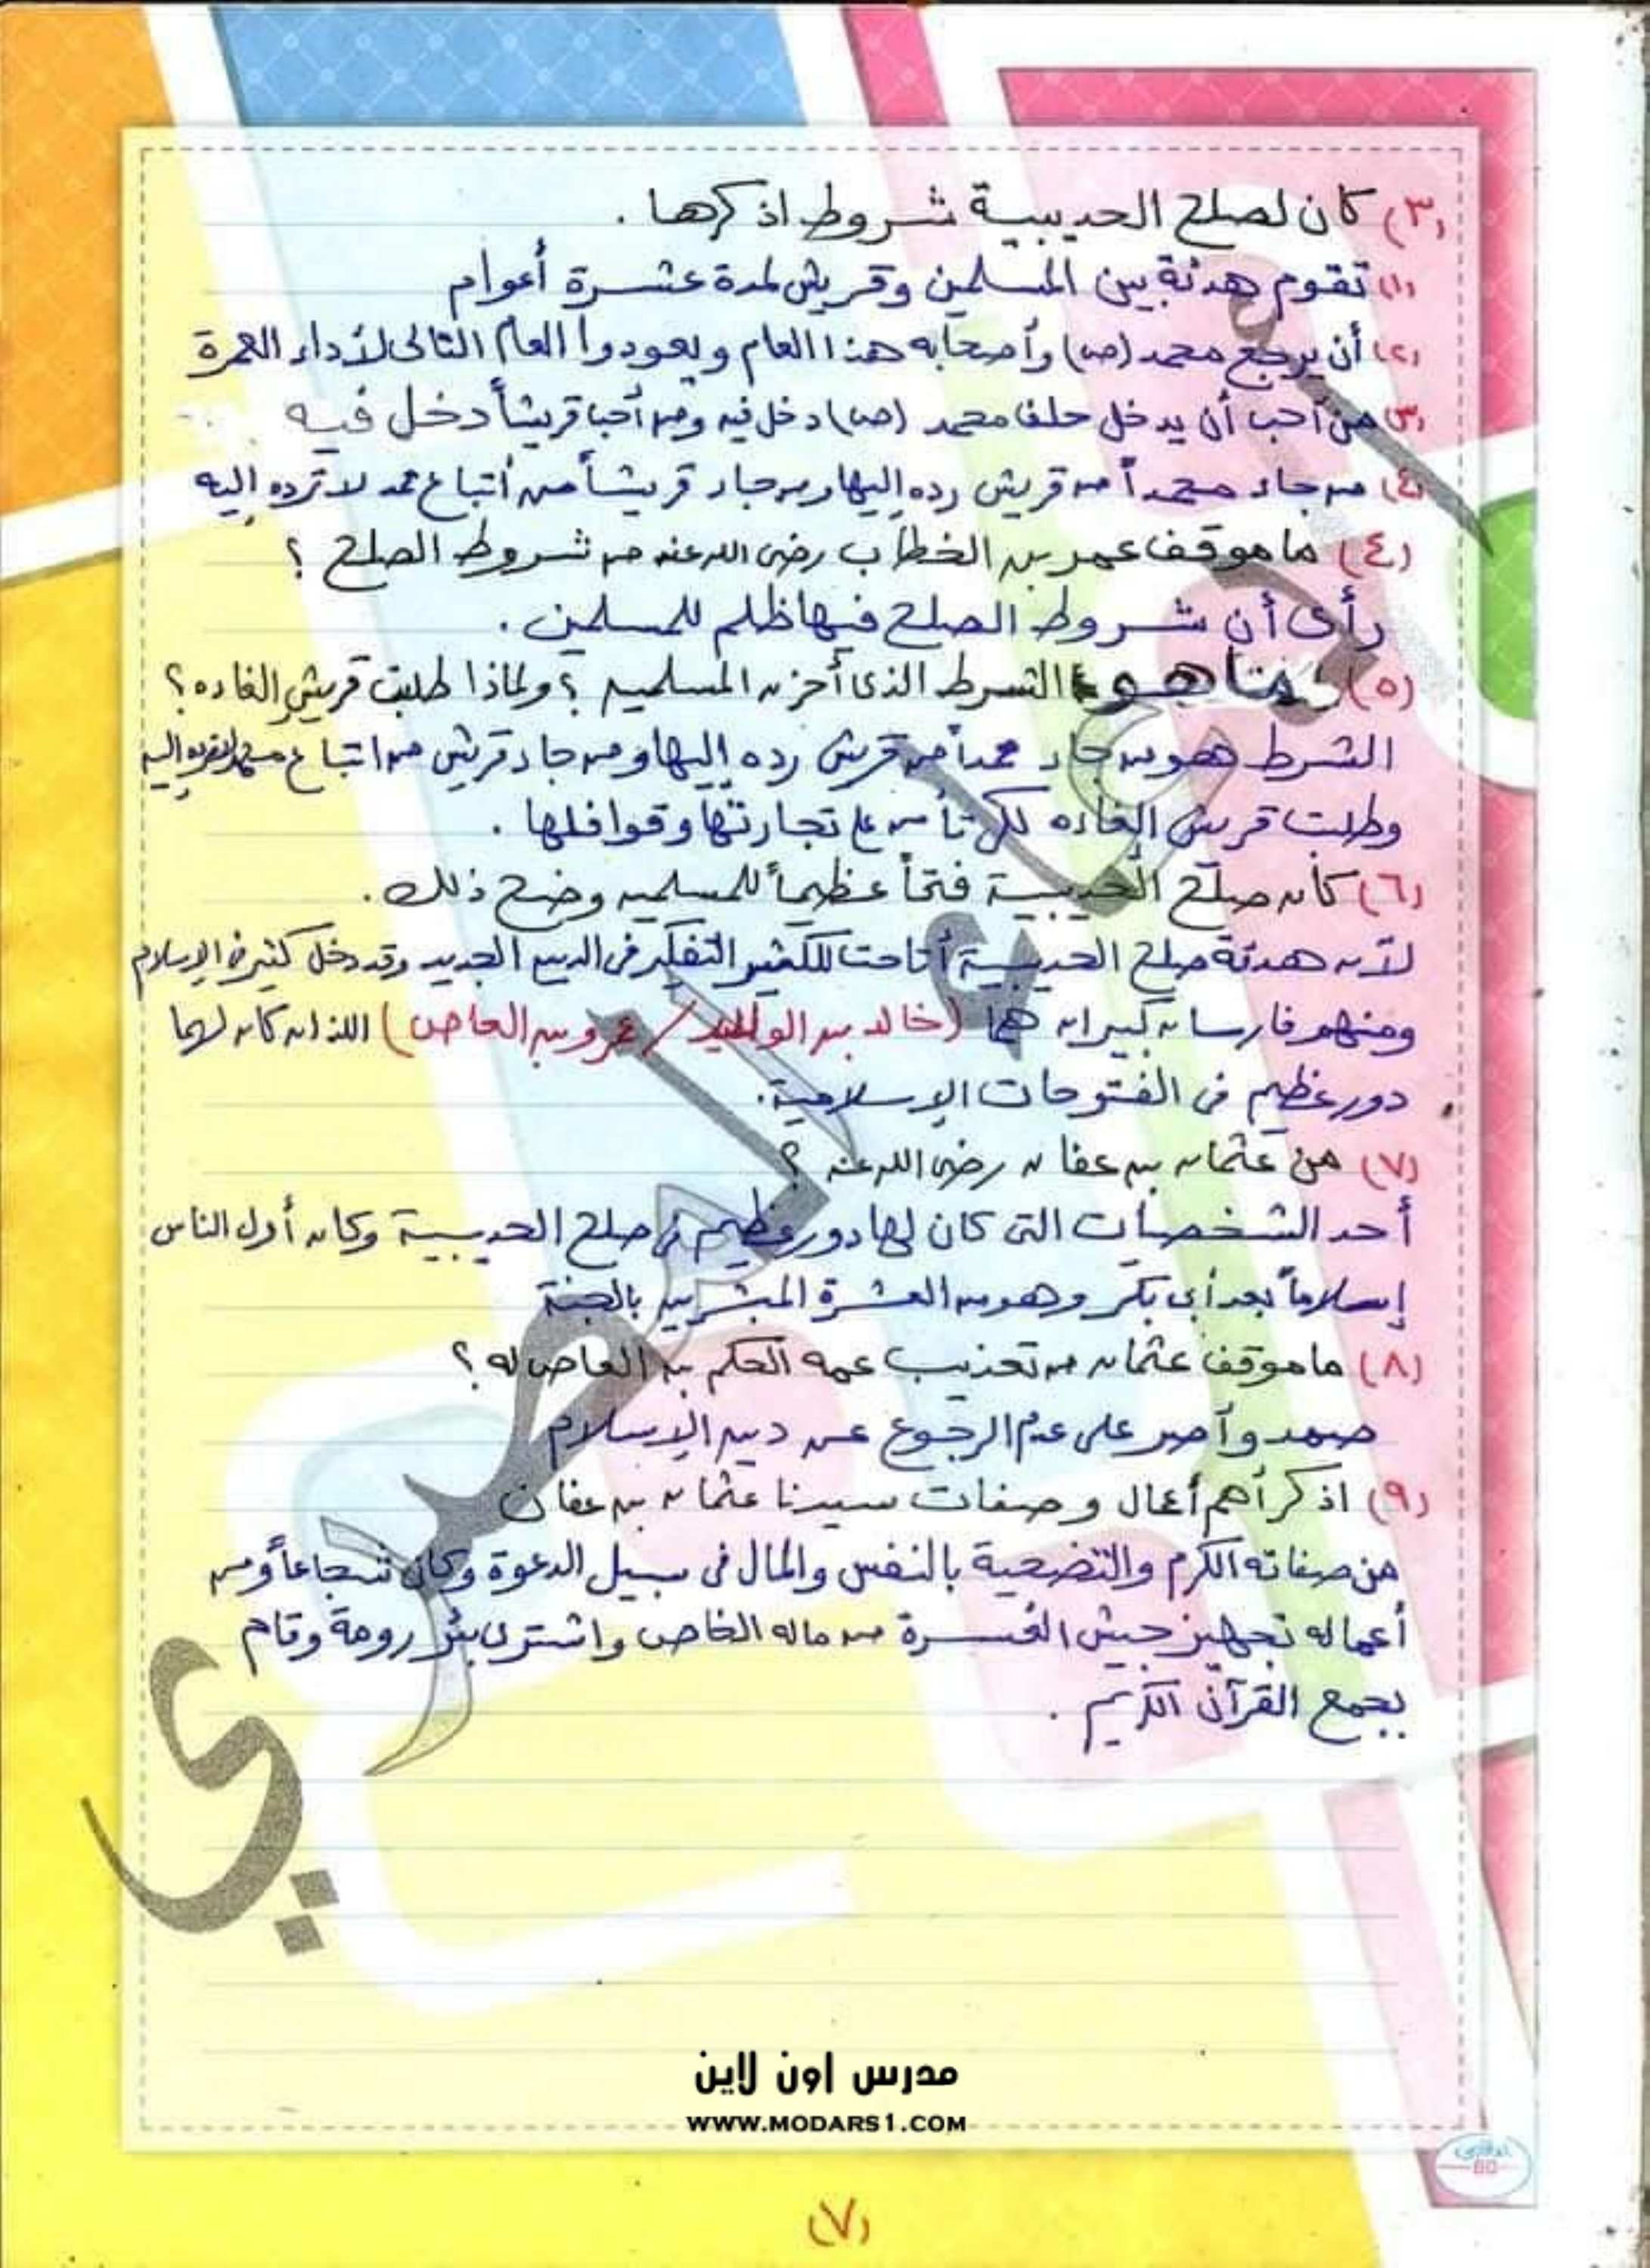 (٣) كان لصلح الحديبية شروط اذكرها .
(١) تقوم هدنة بين المسلمين وقريش لمدة عشرة أعوام
(٢) أن يرجع محمد (ص) وأصحابه هذا العام ويعودوا العام التالى لأداء العمرة
(٣) من أحب أن يدخل حلف محمد (ص) دخل فيه ومن أحب قريشاً دخل فيه
(٤) من جاء محمداً من قريش رده إليها ومن جاء قريشاً من أتباع محمد لا ترده إليه
(٤) ما موقف عمر بن الخطاب رضى الله عنه من شروط الصلح ؟
رأى أن شروط الصلح فيها ظلم للمسلمين .
(٥) ما هو الشرط الذى أحزن المسلمين ؟ ولماذا طلبت قريش الغاءه ؟
الشرط هو من جاء محمداً من قريش رده إليها ومن جاء قريش من اتباع محمد لا ترده إليه
وطلبت قريش الغاءه لكى تأمن على تجارتها وقوافلها .
(٦) كان صلح الحديبية فتحاً عظيماً للمسلمين وضح ذلك .
لأن هدنة صلح الحديبية أتاحت للكثير التفكير فى الدين الجديد وقد دخل كثير فى الإسلام
ومنهم فارسان كبيران هما (خالد بن الوليد / عمرو بن العاص) اللذان كان لهما
دور عظيم فى الفتوحات الإسلامية .
(٧) من عثمان بن عفان رضى الله عنه ؟
أحد الشخصيات التى كان لها دور عظيم فى صلح الحديبية وكان أول الناس
إسلاماً بعد أبى بكر وهو من العشرة المبشرين بالجنة
(٨) ما موقف عثمان من تعذيب عمه الحكم بن العاص له ؟
صمد وأصر على عدم الرجوع عن دين الإسلام
(٩) اذكر أهم أعمال وصفات سيدنا عثمان بن عفان
من صفاته الكرم والتضحية بالنفس والمال فى سبيل الدعوة وكان شجاعاً ومن
أعماله تجهيز جيش العسرة من ماله الخاص واشترى بئر رومة وقام
بجمع القرآن الكريم .
مدرس اون لاين
WWW.MODARS1.COM
80
(٧)